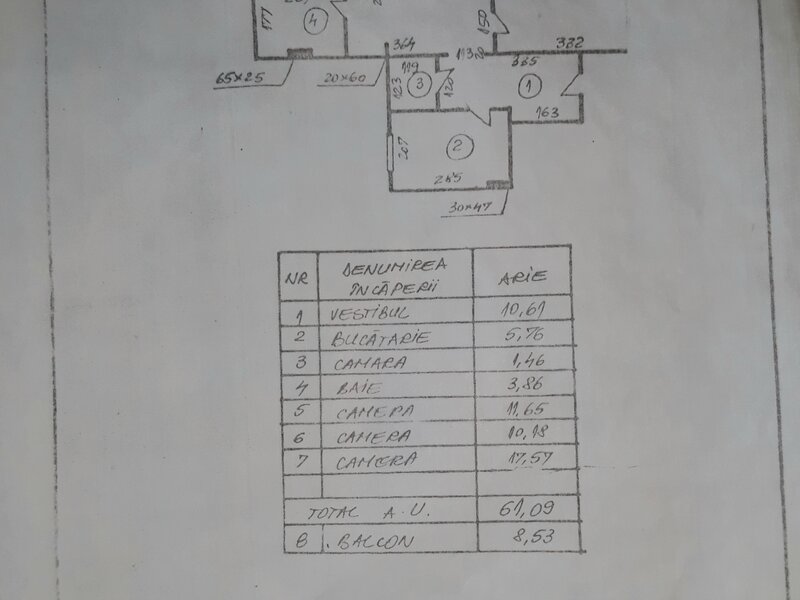 177
4
150
364
138
332
65×25
20×60
119
3
123
120
385
1
163
207
2
285
30×47
NR DENUMIREA ÎNCĂPERII ARIE
1 VESTIBUL 10,61
2 BUCĂTARIE 5,76
3 CAMARA 1,46
4 BAIE 3,86
5 CAMERA 11,65
6 CAMERA 10,18
7 CAMERA 17,57
TOTAL A.U. 61,09
8 BALCON 8,53